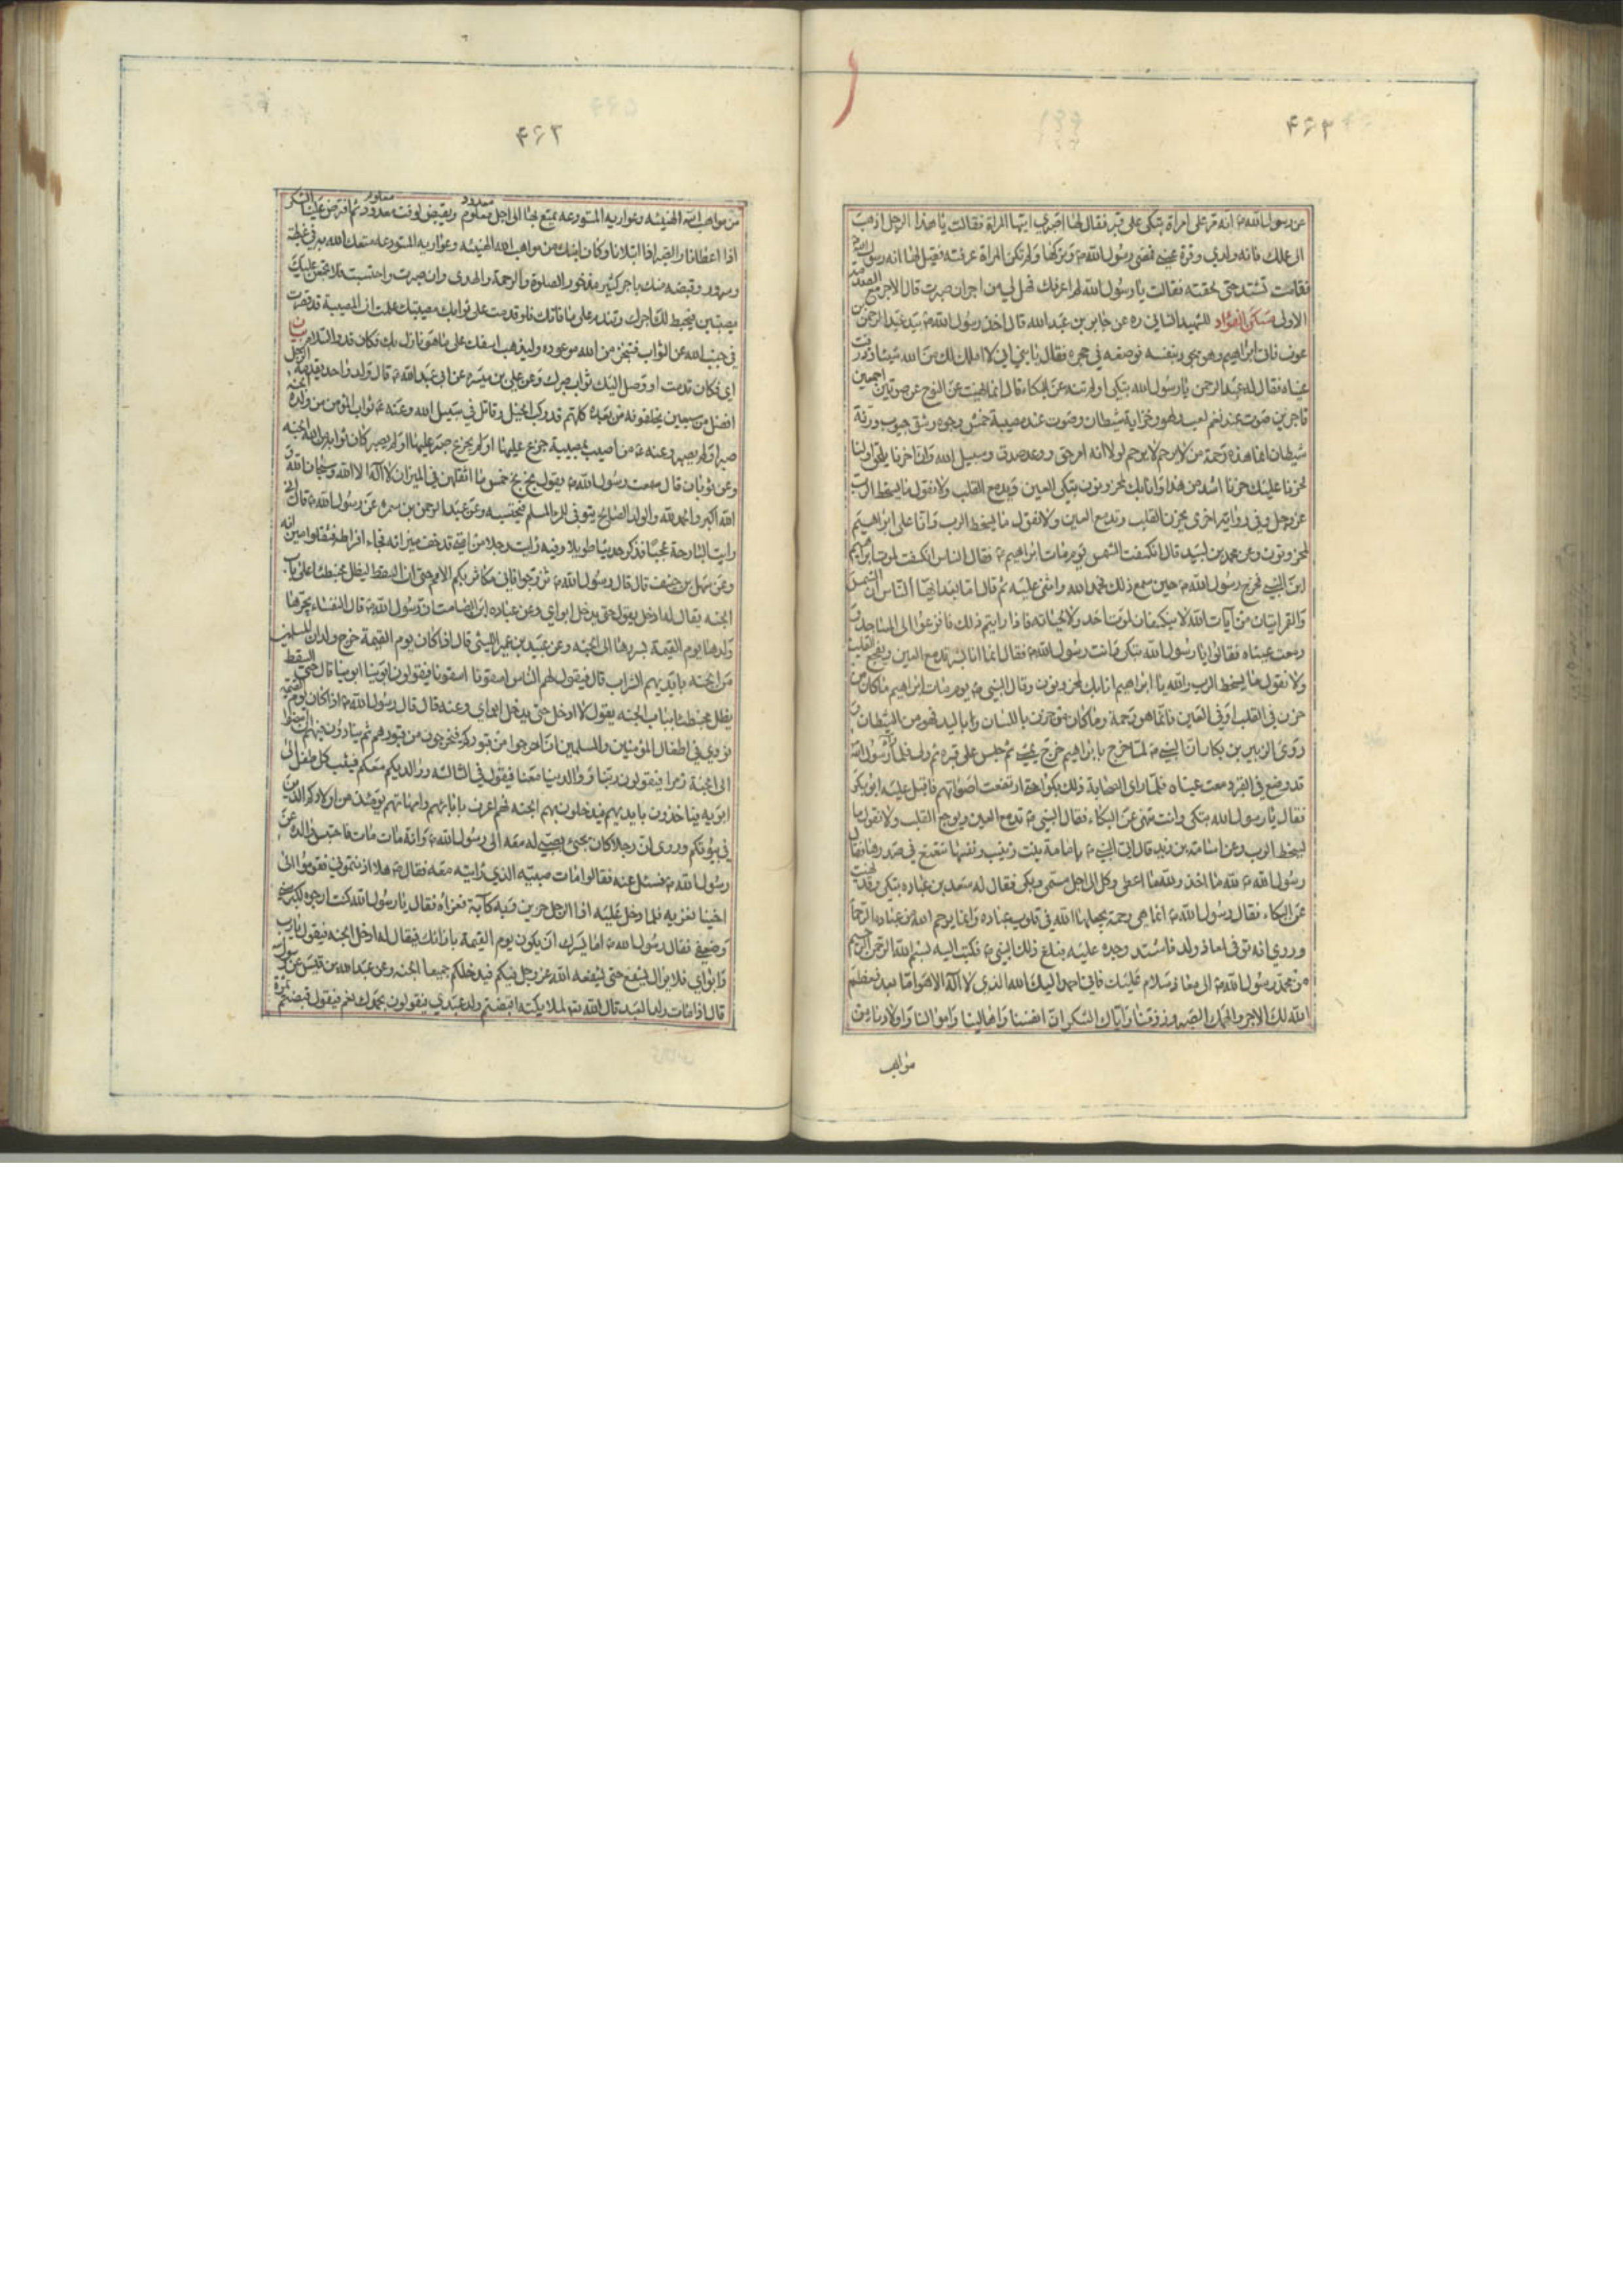 ۴۶۲
عن رسول الله ص انه مر على امراة تبكى على قبر فقال لها اصبري ايتها المراة فقالت يا هذا الرجل اذهب
الى عملك فانه ولدي وقرة عيني فمضى رسول الله ص وتركها ولم تكن المراة عرفته فقيل لها انه رسول الله
فقامت تشتد حتى لحقته فقالت يا رسول الله لم اعرفك فهل لي من اجر ان صبرت قال الاجر مع الصدمة
الاولى مسكن الفؤاد للشهيد الثاني ره عن جابر بن عبد الله قال اخذ رسول الله ص بيد عبد الرحمن بن
عوف فاتى ابراهيم وهو يجود بنفسه فوضعه في حجره فقال يا بني اني لا املك لك من الله شيئا وذرفت
عيناه فقال له عبد الرحمن يا رسول الله تبكى اولم تنه عن البكاء قال انما نهيت عن النوح عن صوتين احمقين
فاجرين صوت عند نغم لعب ولهو ومزامير شيطان وصوت عند مصيبة خمش وجوه وشق جيوب ورنة
شيطان انما هذه رحمة من لا يرحم لا يرحم لولا انه امر حق ووعد صدق وسبيل الله وان اخرنا يلحق اولنا
لحزنا عليك حزنا اشد من هذا وانا بك لمحزونون تبكى العين ويدمع القلب ولا نقول ما يسخط الرب
عز وجل وفي رواية اخرى يحزن القلب وتدمع العين ولا نقول ما يسخط الرب وانا على ابراهيم
لمحزونون وعن محمود بن لبيد قال انكسفت الشمس يوم مات ابراهيم ع فقال الناس انكسفت لموت ابراهيم
ابن النبي فخرج رسول الله ص حين سمع ذلك فحمد الله واثنى عليه ثم قال اما بعد ايها الناس ان الشمس
والقمر ايتان من آيات الله لا ينكسفان لموت احد ولا لحياته فاذا رايتم ذلك فافزعوا الى المساجد و
دمعت عيناه فقالوا يا رسول الله تبكى وانت رسول الله ص فقال انما انا بشر تدمع العين ويفجع القلب
ولا نقول ما يسخط الرب والله يا ابراهيم انا بك لمحزونون وقال النبي ص يوم مات ابراهيم ما كان من
حزن في القلب او في العين فانما هو رحمة وما كان من حزن باللسان وباليد فهو من الشيطان و
روى الزبير بن بكار ان النبي ص لما خرج بابراهيم خرج يمشي ثم جلس على قبره ثم ولى فلما راه رسول الله
قد وضع في القبر دمعت عيناه فلما راى الصحابة ذلك بكوا حتى ارتفعت اصواتهم فاقبل عليه ابو بكر
فقال يا رسول الله تبكى وانت تنهى عن البكاء فقال النبي ص تدمع العين ويوجع القلب ولا نقول ما
يسخط الرب وعن اسامة بن زيد قال اتى النبي ص بامامة بنت زينب ونفسها تتقعقع في صدرها فقال
رسول الله ص لله ما اخذ ولله ما اعطى وكل الى اجل مسمى وبكى فقال له سعد بن عباده تبكى وقد نهيت
عن البكاء فقال رسول الله ص انما هي رحمة يجعلها الله في قلوب عباده وانما يرحم الله من عباده الرحماء
وروي انه توفى لمعاذ ولد فاشتد وجده عليه فبلغ ذلك النبي ص فكتب اليه بسم الله الرحمن الرحيم
من محمد رسول الله ص الى معاذ سلام عليك فاني احمد اليك الله الذي لا اله الا هو اما بعد فعظم
الله لك الاجر والهمك الصبر ورزقنا واياك الشكر ان انفسنا واهالينا واموالنا واولادنا من
مواهب
۴۶۳
من مواهب الله الهنيئه وعواريه المستودعه يمتع بها الى اجل معلوم ويقبض لوقت معدود ثم افترض علينا الشكر
معدود معلوم
اذا اعطانا والصبر اذا ابتلانا وكان ابنك من مواهب الله الهنيئه وعواريه المستودعه متعك الله به في غبطة
وسرور وقبضه منك باجر كثير مذخور الصلوة والرحمة والهدى وان صبرت واحتسبت فلا تجمعن عليك
مصيبتين فيحبط لك اجرك وتندم على ما فاتك فلو قدمت على ثواب مصيبتك علمت ان المصيبة قد قصرت
في جنب الله عن الثواب فتنجز من الله موعوده وليذهب اسفك على ما هو نازل بك فكان قد والسلام بيان
اي فكان قدمت او وصل اليك ثواب صبرك وعن علي بن ميسره عن ابي عبد الله ع قال ولد واحد يقدمه الرجل
افضل من سبعين يخلفونه من بعده كلهم قد ركب الخيل وقاتل في سبيل الله وعنه ع ثواب المؤمن من ولده الجنة
صبر او لم يصبر وعنه ع من اصيب بمصيبة جزع عليها او لم يجزع صبر عليها او لم يصبر كان ثوابه من الله الجنه
وعن ثوبان قال سمعت رسول الله ص يقول بخ بخ خمس ما اثقلهن في الميزان لا اله الا الله وسبحان الله و
الله اكبر والحمد لله والولد الصالح يتوفى للمرء المسلم فيحتسبه وعن عبد الرحمن بن سمره عن رسول الله ص قال اني
رايت البارحة عجبا فذكر حديثا طويلا وفيه رايت رجلا من امتي قد خف ميزانه فجاء افراطه فثقلوا ميزانه
وعن سهل بن حنيف قال قال رسول الله ص تزوجوا فاني مكاثر بكم الامم حتى ان السقط ليظل محبنطئا على باب
الجنه يقال له ادخل يقول حتى يدخل ابواي وعن عباده ابن الصامت ان رسول الله ص قال النفساء يجرها
ولدها يوم القيمة بسررها الى الجنه وعن عبيد بن عمير الليثي قال اذا كان يوم القيمة خرج ولدان المسلمين
من الجنه بايديهم الشراب قال فيقول لهم الناس اسقونا اسقونا فيقولون ابوينا ابوينا قال حتى السقط
يظل محبنطئا بباب الجنه يقول لا ادخل حتى يدخل ابواي وعنه قال قال رسول الله ص اذا كان يوم القيمة
نودي في اطفال المؤمنين والمسلمين ان اخرجوا من قبوركم فيخرجون من قبورهم ثم ينادون فيهم ان امضوا
الى الجنة زمرا فيقولون ربنا ووالدينا معنا فيقول في الثالثه ووالديكم معكم فيثب كل طفل الى
ابويه فياخذون بايديهم فيدخلون بهم الجنه فهم اعرف بابائهم وامهاتهم يومئذ من اولادكم الذين
في بيوتكم وروى ان رجلا كان يجيئ بصبي له معه الى رسول الله ص وانه مات فاحتبس والده عن
رسول الله ص فسئل عنه فقالوا مات صبيه الذي رايته معه فقال ص هلا اذنتموني فقوموا الى
اخينا نعزيه فلما دخل عليه اذا الرجل حزين وبه كآبة فعزاه فقال يا رسول الله كنت ارجوه لكبر سني
وضعفي فقال رسول الله ص اما يسرك ان يكون يوم القيمة بازائك فيقال له ادخل الجنه فيقول يا رب
وابواي فلا يزال يشفع حتى يشفعه الله عز وجل فيكم فيدخلكم جميعا الجنه وعن عبد الله بن قيس عن رسول الله
قال اذا مات ولد العبد قال الله تع لملائكته اقبضتم ولد عبدي فيقولون بحمدك نعم فيقول قبضتم ثمرة